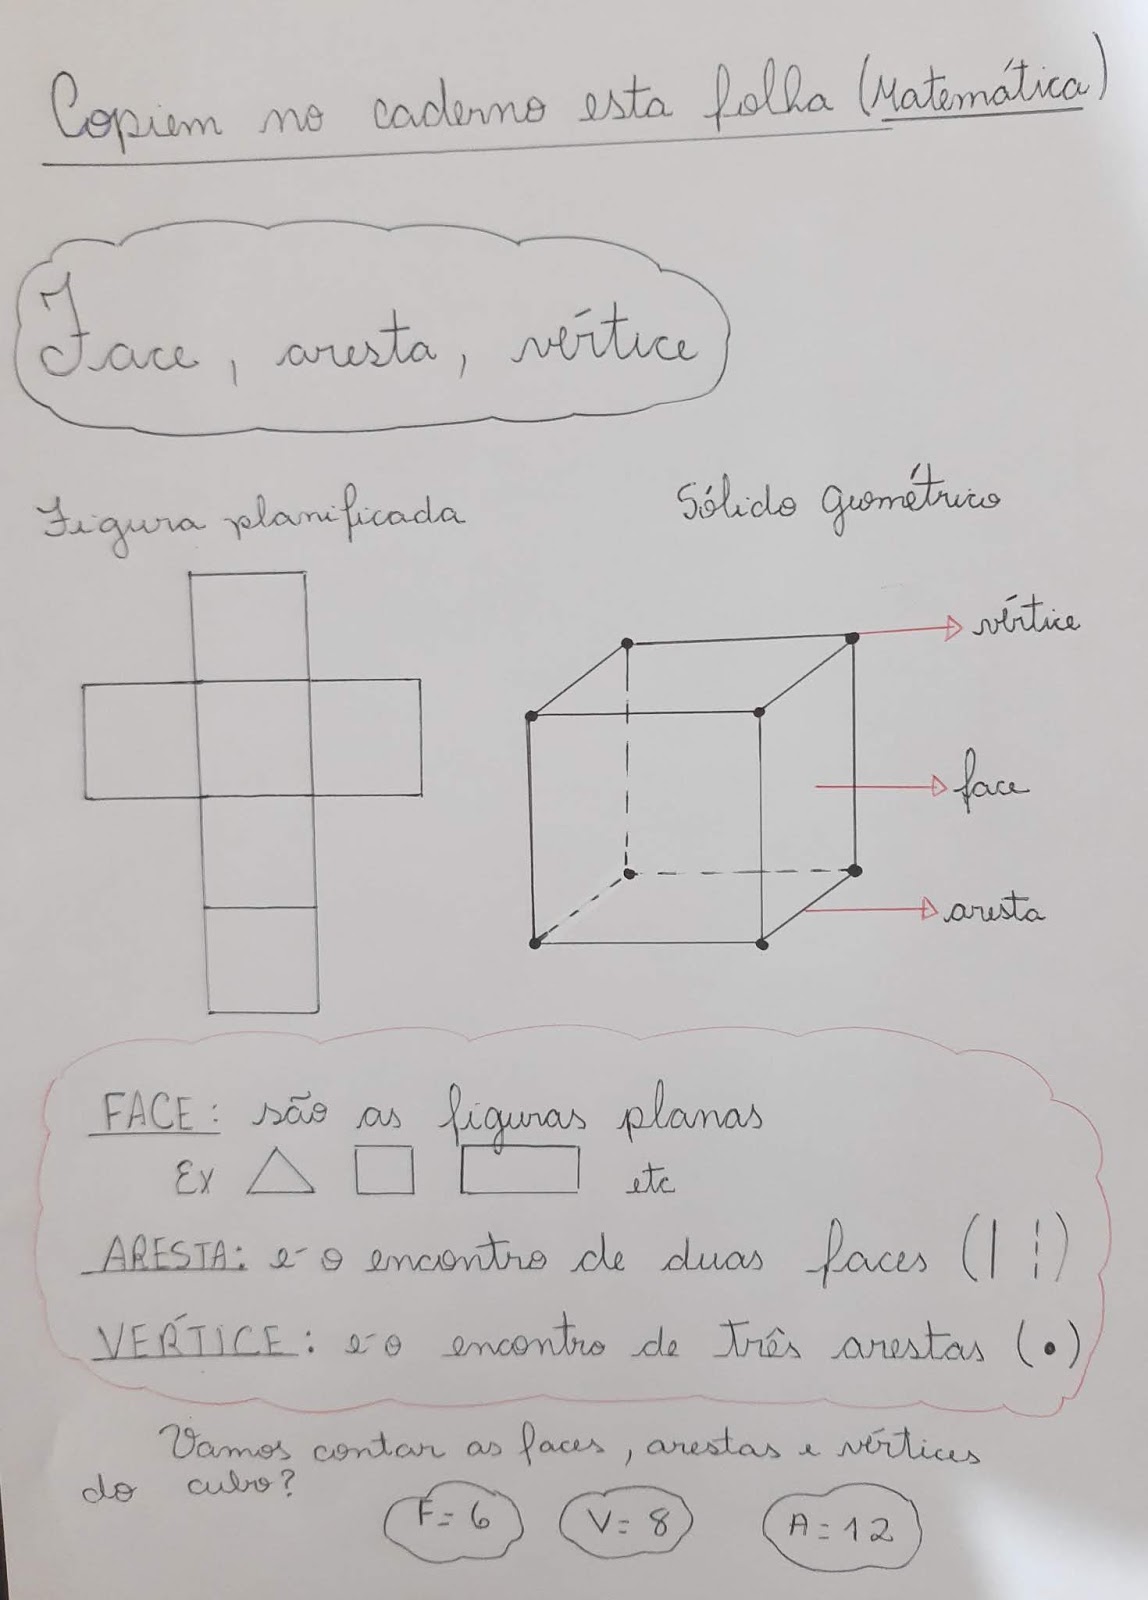 Copiem no caderno esta folha (Matemática)
Face, aresta, vértice
Figura planificada
Sólido Geométrico
vértice
face
aresta
FACE: são as figuras planas
Ex etc
ARESTA: é o encontro de duas faces (| ¦)
VÉRTICE: é o encontro de três arestas (•)
Vamos contar as faces, arestas e vértices
do cubo?
F= 6 V= 8 A= 12